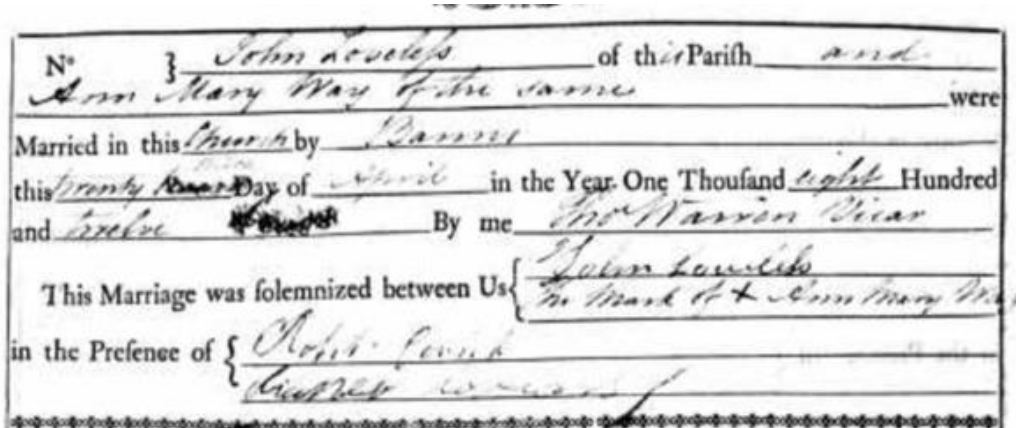 N° } John Loveleſs of this Pariſh and
Ann Mary Way of the same were
Married in this Church by Banns
this twenty Day of April in the Year One Thouſand eight Hundred
and twelve By me Thoˢ Warren Vicar
This Marriage was ſolemnized between Us { John Loveleſs
The Mark of + Ann Mary Way
in the Preſence of { Robt.